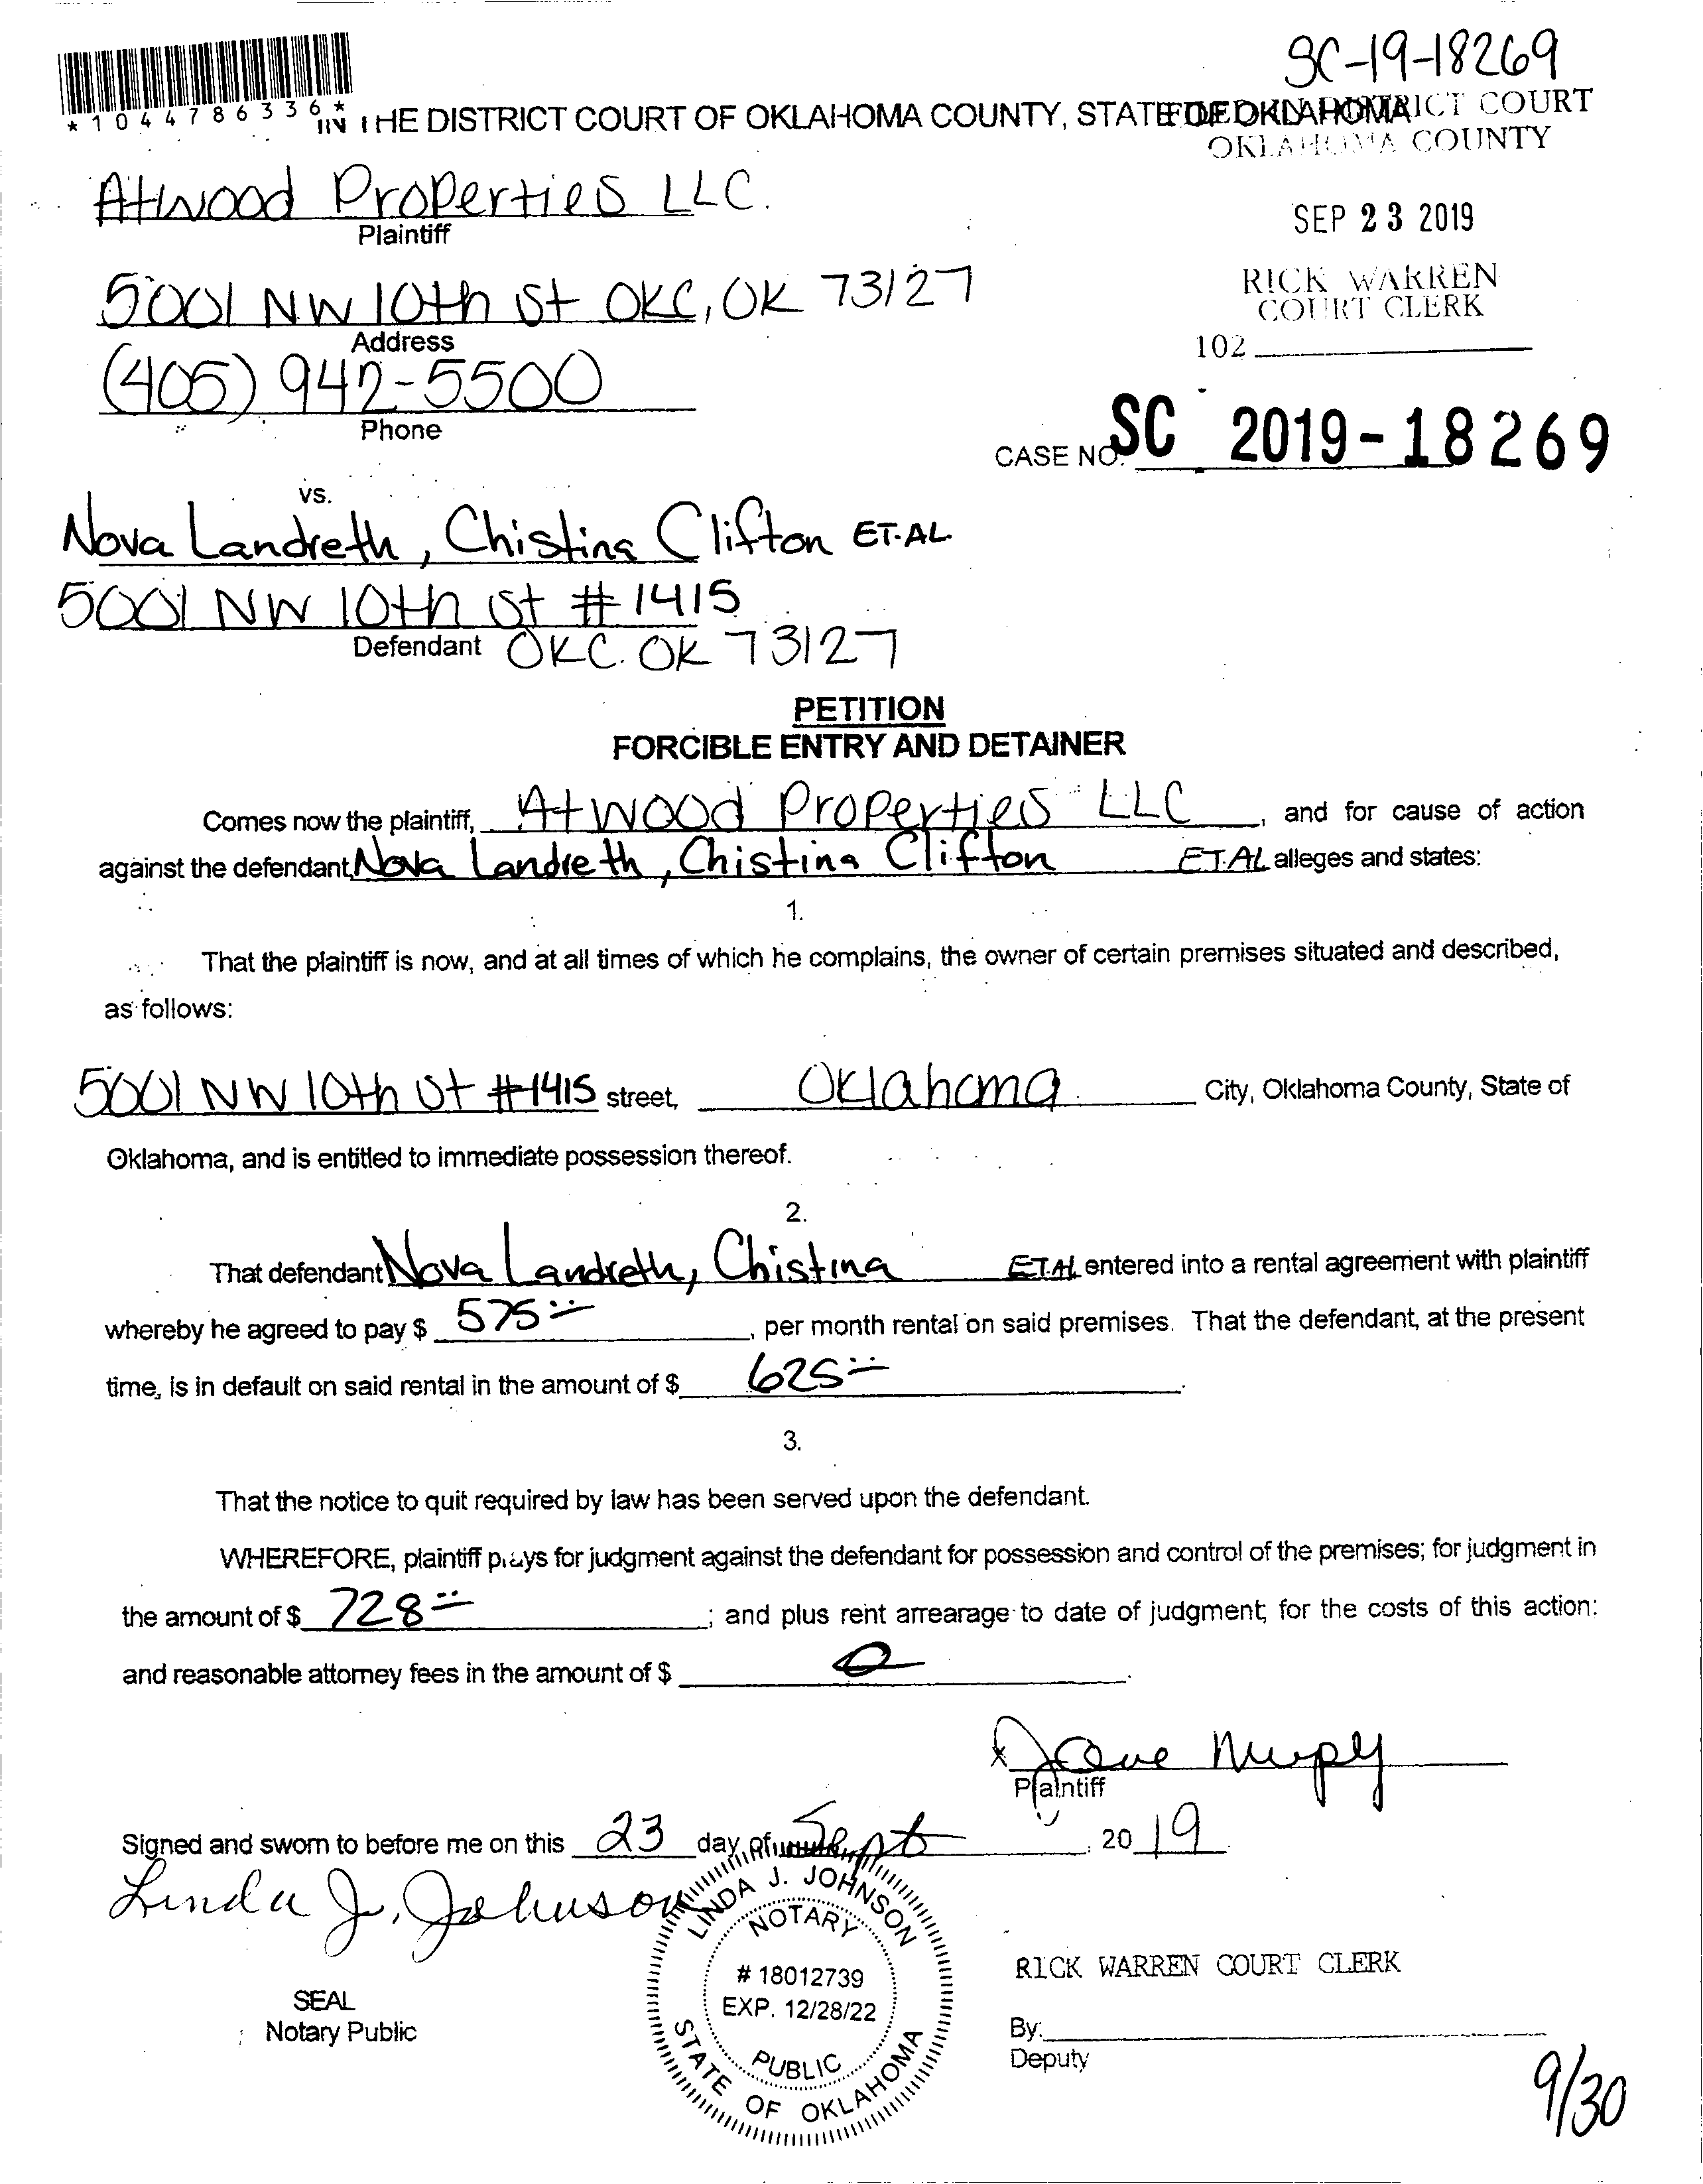 SC-19-18269
*1044786336*
IN THE DISTRICT COURT OF OKLAHOMA COUNTY, STATE OF OKLAHOMA
FILED IN DISTRICT COURT
OKLAHOMA COUNTY
Atwood Properties LLC.
Plaintiff
SEP 23 2019
5001 NW 10th St OKC, OK 73127
Address
RICK WARREN
COURT CLERK
102
(405) 942-5500
Phone
CASE NO. SC 2019-18269
vs.
Nova Landreth, Chistina Clifton ET.AL.
5001 NW 10th St #1415
Defendant OKC. OK 73127
PETITION
FORCIBLE ENTRY AND DETAINER
Comes now the plaintiff, Atwood Properties LLC, and for cause of action
against the defendant Nova Landreth, Chistina Clifton ET.AL alleges and states:
1.
That the plaintiff is now, and at all times of which he complains, the owner of certain premises situated and described,
as follows:
5001 NW 10th St #1415 street, Oklahoma City, Oklahoma County, State of
Oklahoma, and is entitled to immediate possession thereof.
2.
That defendant Nova Landreth, Chistina ET.AL entered into a rental agreement with plaintiff
whereby he agreed to pay $ 575, per month rental on said premises. That the defendant, at the present
time, is in default on said rental in the amount of $ 625.
3.
That the notice to quit required by law has been served upon the defendant.
WHEREFORE, plaintiff prays for judgment against the defendant for possession and control of the premises; for judgment in
the amount of $ 728; and plus rent arrearage to date of judgment; for the costs of this action:
and reasonable attorney fees in the amount of $ 0.
x
Plaintiff
Signed and sworn to before me on this 23 day of Sept, 2019.
Linda J. Johnson
LINDA J. JOHNSON
NOTARY
# 18012739
EXP. 12/28/22
PUBLIC
STATE OF OKLAHOMA
SEAL
Notary Public
RICK WARREN COURT CLERK
By:
Deputy
9/30